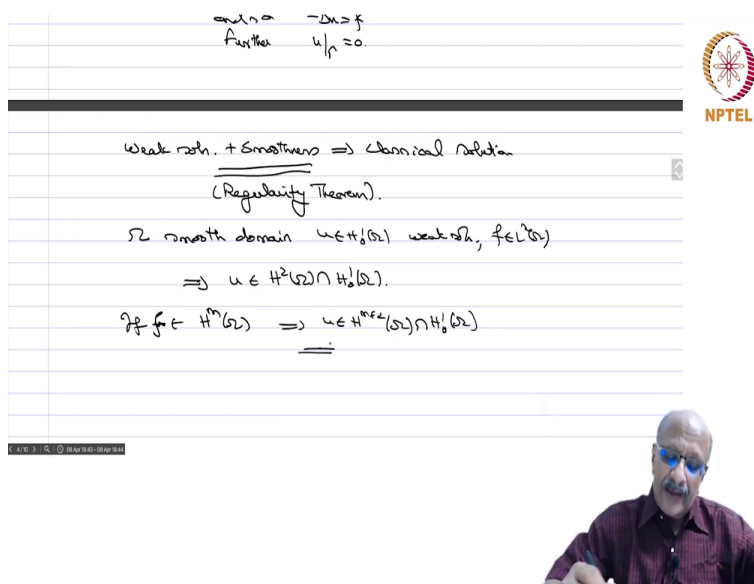 and so −Δu = f
further u/Γ = 0.
NPTEL
Weak soln. + Smoothness ⇒ Classical solution
(Regularity Theorem).
Ω smooth domain u ∈ H₀¹(Ω) weak soln, f ∈ L²(Ω)
⇒ u ∈ H²(Ω) ∩ H₀¹(Ω).
If f ∈ Hᵐ(Ω) ⇒ u ∈ Hᵐ⁺²(Ω) ∩ H₀¹(Ω)
4/10 08 Apr 18:43 - 08 Apr 18:44